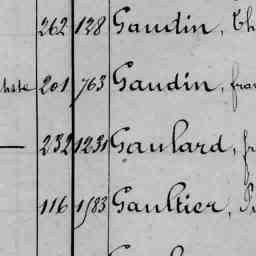 262 128 Gaudin, Th
201 763 Gaudin, fran
232 1231 Gaulard, fr
116 1583 Gaultier,